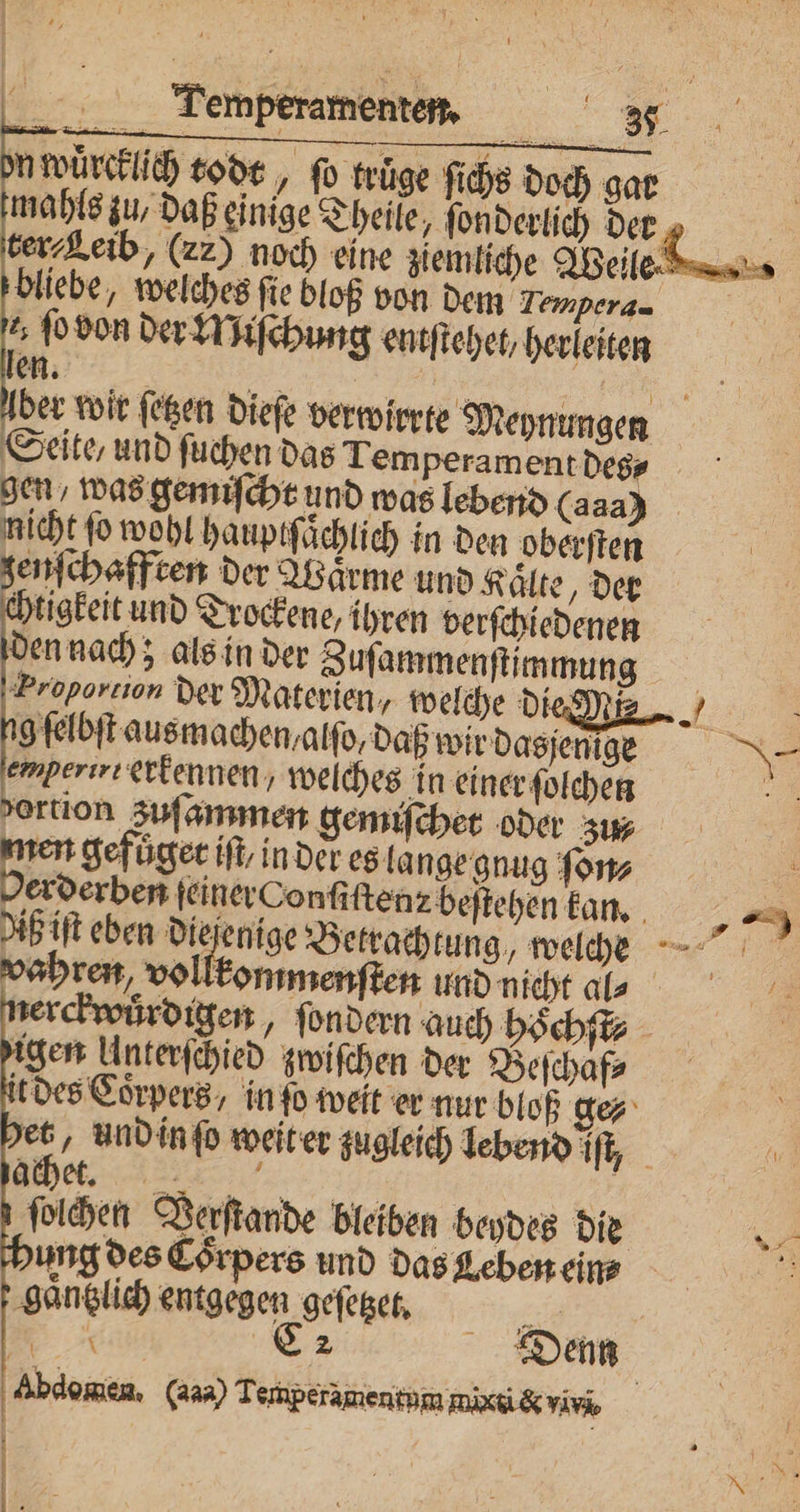 Temperamenten. 35
on wuͤrcklich todt, ſo truͤge ſichs doch gar
mahls zu, daß einige Theile, ſonderlich der
ter⸗Leib, (zz) noch eine ziemliche Weile
bliebe, welches ſie bloß von dem Tempera-
ſo von der Miſchung entſtehet, herleiten
len.
Aber wir ſetzen dieſe verwirrte Meynungen
Seite, und ſuchen das Temperament des⸗
gen, was gemiſcht und was lebend (aaa)
nicht ſo wohl hauptſaͤchlich in den oberſten
genſchafften der Waͤrme und Kaͤlte, der
chtigkeit und Trockene, ihren verſchiedenen
den nach; als in der Zuſammenſtimmung
Proportion der Materien, welche die Mi⸗
ng ſelbſt ausmachen, alſo, daß wir dasjenige
emperirt erkennen, welches in einer ſolchen
portion zuſammen gemiſchet oder zu⸗
men gefuͤget iſt, in der es lange gnug ſon⸗
Verderben ſeiner Conſiſtenz beſtehen kan.
Diß iſt eben diejenige Betrachtung, welche
wahren, vollkommenſten und nicht al⸗
merckwuͤrdigen, ſondern auch hoͤchſt⸗
igen Unterſchied zwiſchen der Beſchaf⸗
it des Coͤrpers, in ſo weit er nur bloß ge⸗
het, und in ſo weit er zugleich lebend iſt,
achet.
ſolchen Verſtande bleiben beydes die
chung des Coͤrpers und das Leben ein⸗
gaͤntzlich entgegen geſetzet.
C 2 Denn
Abdomen. (aaa) Temperamentum mixti & vivi.